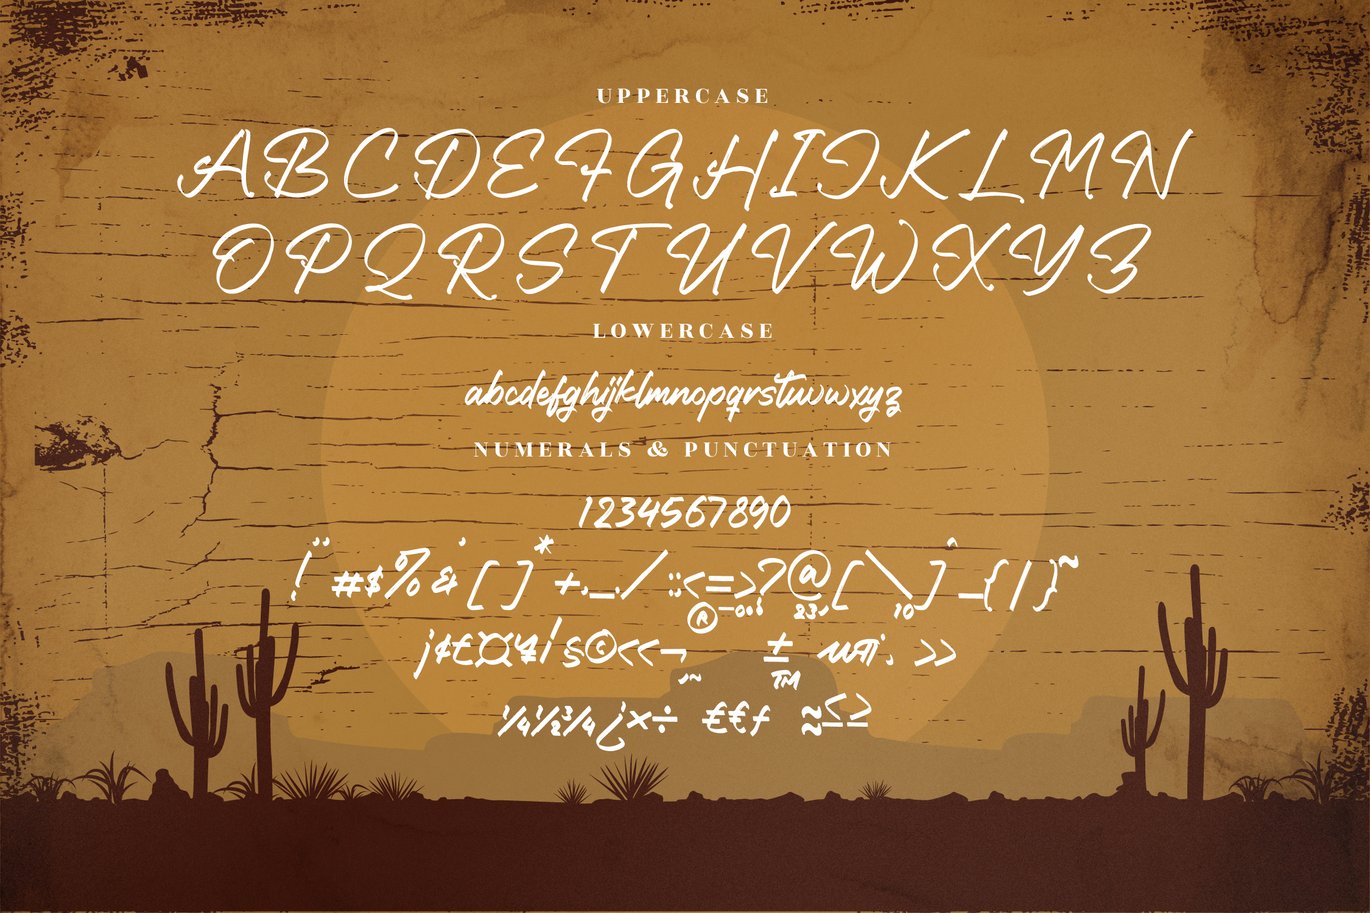 UPPERCASE
ABCDEFGHIJKLMN
OPQRSTUVWXYZ
LOWERCASE
abcdefghijklmnopqrstuvwxyz
NUMERALS & PUNCTUATION
1234567890
!¨#$%˙&[]*+._./::<=>?@[\]ˆ_{|}~
®–00¹ 23, 10
¡¢£¤¥|§©<<¬ ± µ¶·. >>
™
¼½¾¿×÷ ₤€ƒ ≈≤≥